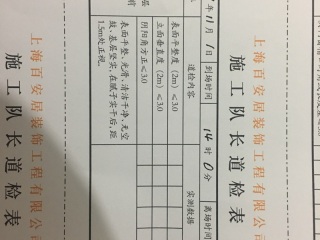 上海百安居装饰工程有限公司
施工队长道检表
年 11 月 1 日 到场时间 14 时 0 分 离场时间
道检内容 实测数据
表面平整度(2m)≤3.0
立面垂直度(2m)≤3.0
阴阳角方正≤3.0
表面平整,光滑,清洁干净,无空
鼓,基层坚实,在腻子实干后,距
1.5m处正视。
上海百安居装饰工程有限公司
施工队长道检表